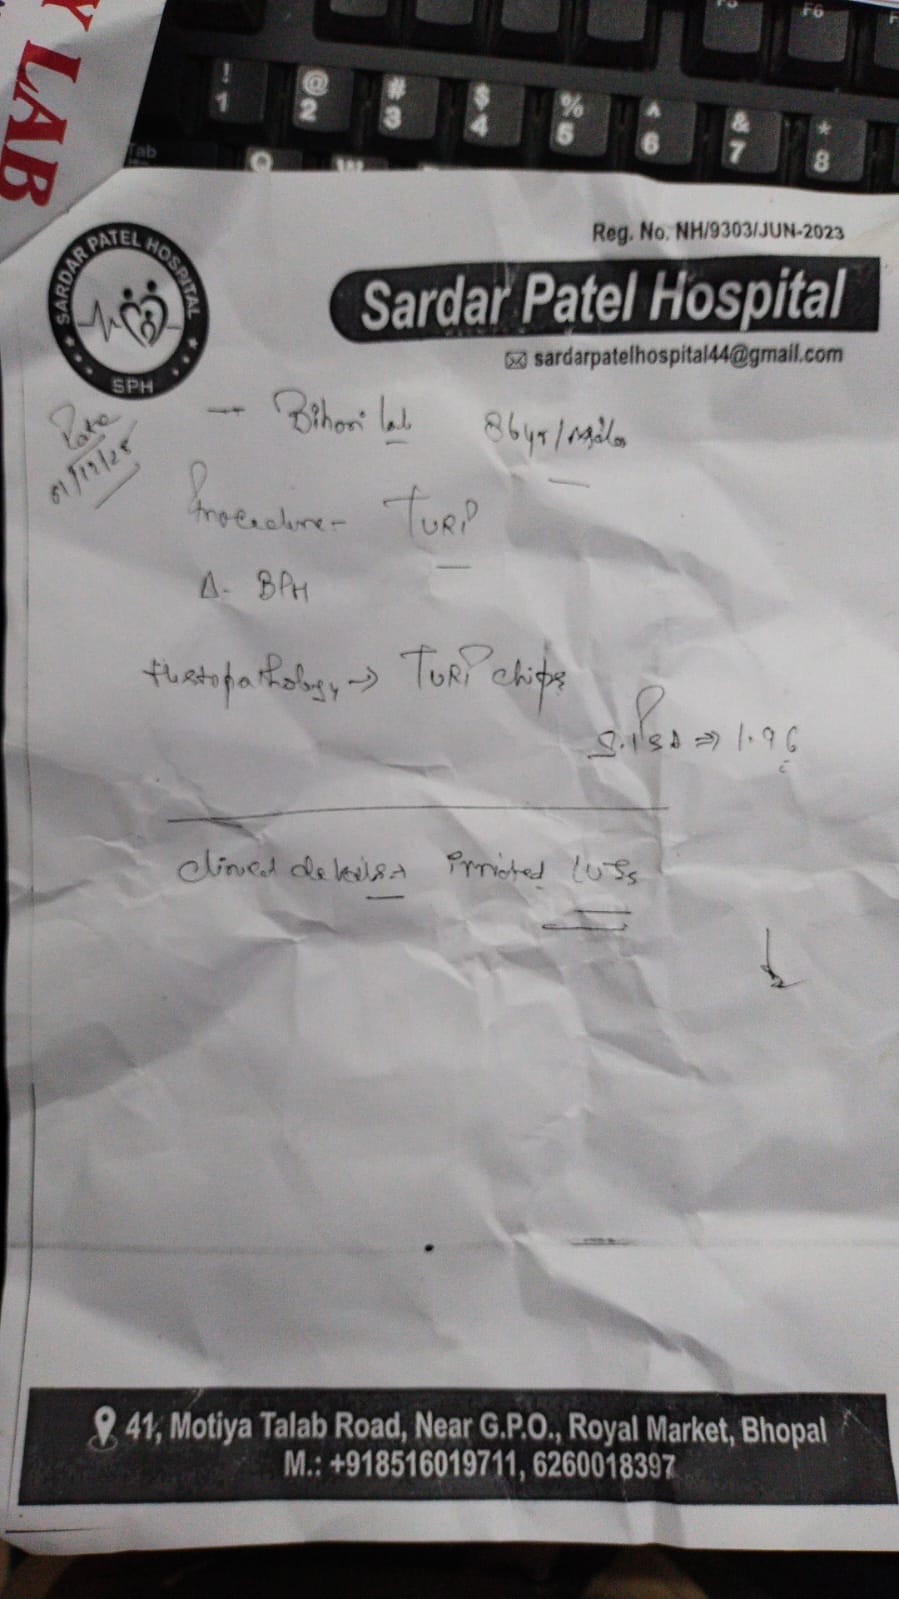 Y LAB
! 1 @ 2 # 3 $ 4 % 5 ^ 6 & 7 * 8
Tab
Reg. No. NH/9303/JUN-2023
SARDAR PATEL HOSPITAL
SPH
Sardar Patel Hospital
sardarpatelhospital44@gmail.com
Date
→ Bihari lal 86yr/Male
Procedure- TURP
Δ- BPH
Histopathology → TURP chips
S.PSA ⇒ 1.96
Clinical details → LUTs
41, Motiya Talab Road, Near G.P.O., Royal Market, Bhopal
M.: +918516019711, 6260018397